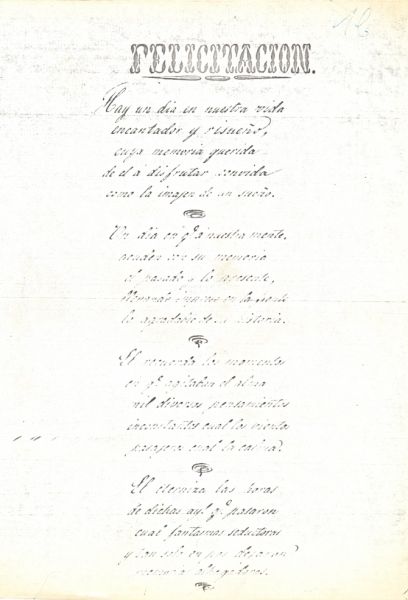 12
FELICITACION.
Hay un dia en nuestra vida
encantador y risueño,
cuya memoria querida
de el á disfrutar convida
como la imajen de un sueño.
Un dia en q.e á nuestra mente,
acuden con su memoria
el pasado y lo presente,
en la
lo agradable de historia.
El recuerda los momentos
en q.e agitaban el alma
mil diversos pensamientos
inconstantes cual los vientos
pasajeros cual la calma.
El eterniza las horas
de dichas ay! q.e pasaron
cual fantasmas seductoras
y tan solo en pos dejaron